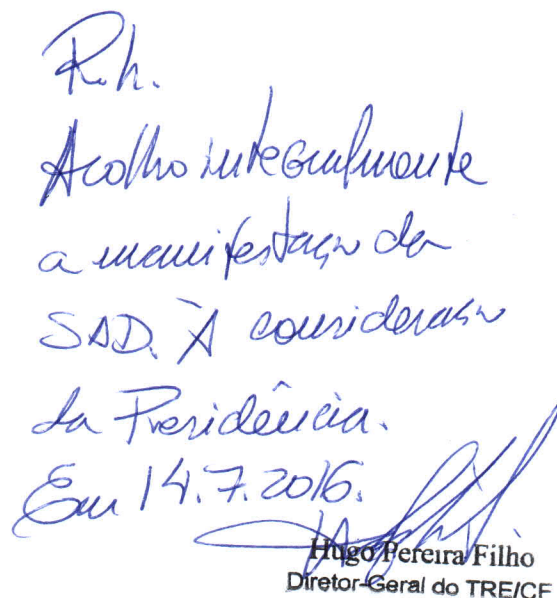 R.h.
Acolho integralmente
a manifestação da
SAD. À consideração
da Presidência.
Em 14.7.2016.
Hugo Pereira Filho
Diretor-Geral do TRE/CE